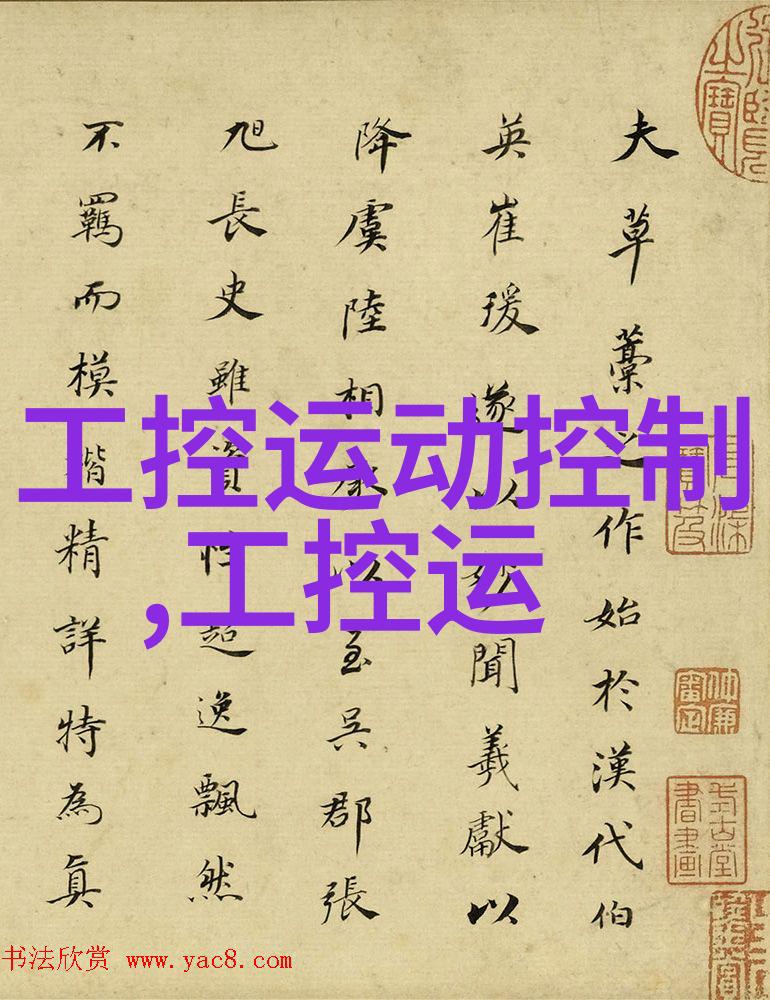 夫草藁之作始於漢代伯
英崔瑗遂以妙聞羲獻以
降虞陸相承以至吳郡張
旭長史雖資性超逸飄然
不羈而模楷精詳特為真
工控运动控制
,工控运
书法欣赏 www.yac8.com